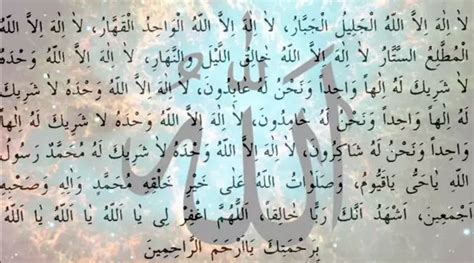 لاَ اِلٰهَ اِلاَّ اللّٰهُ الْجَلِيلُ الْجَبَّارُ، لاَ اِلٰهَ اِلاَّ اللّٰهُ الْوَاحِدُ الْقَهَّارُ، لاَ اِلٰهَ اِلاَّ اللّٰهُ
الْمُطَّلِعُ السَّتَّارُ، لاَ اِلٰهَ اِلاَّ اللّٰهُ خَالِقُ اللَّيْلِ وَالنَّهَارِ، لاَ اِلٰهَ اِلاَّ اللّٰهُ وَحْدَهُ
لاَ شَرِيكَ لَهُ اِلٰهاً وَاحِداً وَنَحْنُ لَهُ عَابِدُونَ، لاَ اِلٰهَ اِلاَّ اللّٰهُ وَحْدَهُ لاَ شَرِيكَ لَهُ اِلٰهاً
وَاحِداً وَنَحْنُ لَهُ حَامِدُونَ، لاَ اِلٰهَ اِلاَّ اللّٰهُ وَحْدَهُ لاَ شَرِيكَ لَهُ اِلٰهاً
وَاحِداً وَنَحْنُ لَهُ شَاكِرُونَ، لاَ اِلٰهَ اِلاَّ اللّٰهُ وَحْدَهُ لاَ شَرِيكَ لَهُ مُحَمَّدٌ رَسُولُ
اللّٰهِ يَاحَىُّ يَاقَيُّومُ، وَصَلَوَاتُ اللّٰهُ عَلَى خَيْرِ خَلْقِهِ مُحَمَّدٍ وَاٰلِهِ وَصَحْبِهِ
اَجْمَعِينَ، اَشْهَدُ اَنَّكَ رَبًّا خَالِقاً، اَللّٰهُمَّ اغْفِرْ لِى يَا اَللّٰهُ يَا اَللّٰهُ يَا اَللّٰهُ
بِرَحْمَتِكَ يَااَرْحَمَ الرَّاحِمِينَ
الله